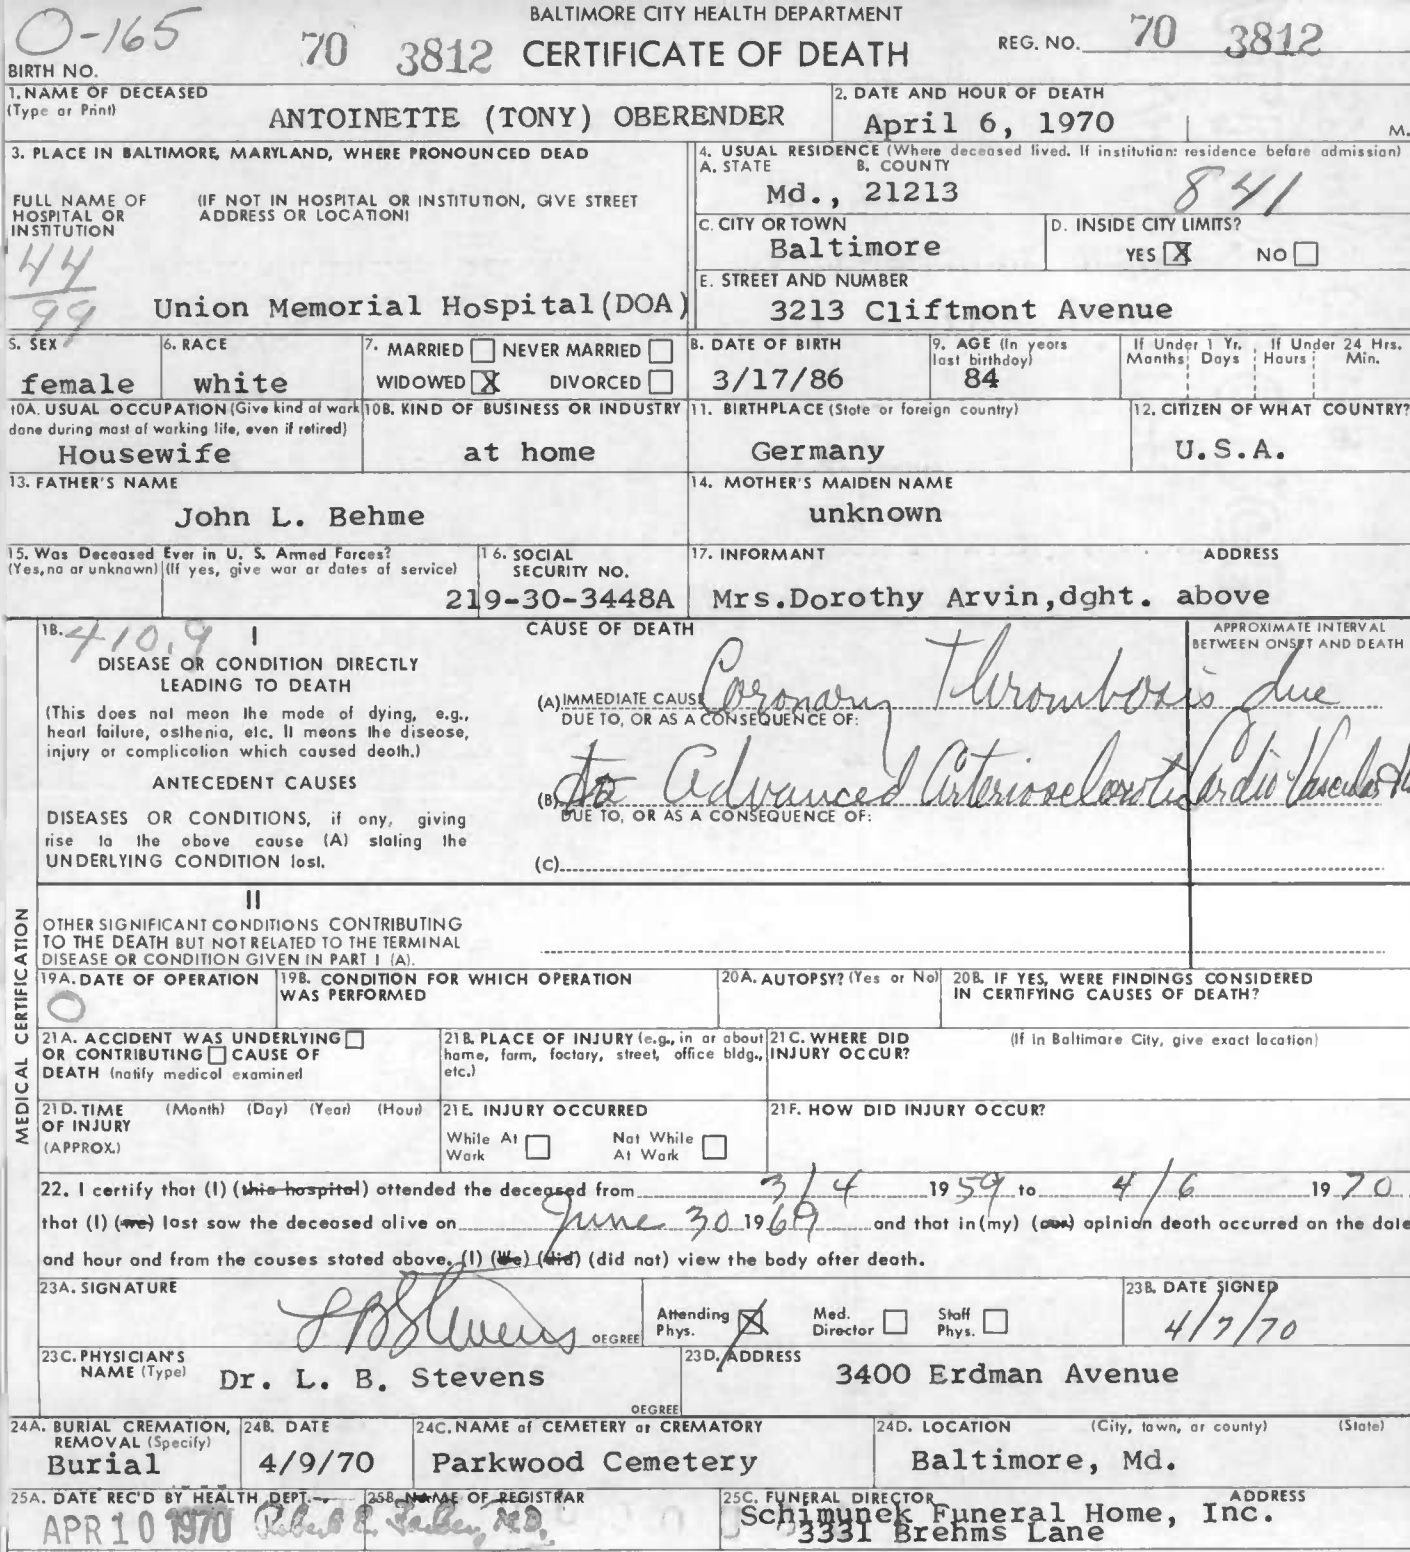 O-165
BALTIMORE CITY HEALTH DEPARTMENT
70 3812 CERTIFICATE OF DEATH REG. NO. 70 3812
BIRTH NO.
1. NAME OF DECEASED
(Type or Print)
ANTOINETTE (TONY) OBERENDER
2. DATE AND HOUR OF DEATH
April 6, 1970 M.
3. PLACE IN BALTIMORE, MARYLAND, WHERE PRONOUNCED DEAD
FULL NAME OF HOSPITAL OR INSTITUTION
(IF NOT IN HOSPITAL OR INSTITUTION, GIVE STREET
ADDRESS OR LOCATION)
44
99
Union Memorial Hospital(DOA)
4. USUAL RESIDENCE (Where deceased lived. If institution: residence before admission)
A. STATE B. COUNTY
Md., 21213 841
C. CITY OR TOWN
Baltimore
D. INSIDE CITY LIMITS?
YES X NO
E. STREET AND NUMBER
3213 Cliftmont Avenue
5. SEX
female
6. RACE
white
7. MARRIED NEVER MARRIED
WIDOWED X DIVORCED
8. DATE OF BIRTH
3/17/86
9. AGE (In years
last birthday)
84
If Under 1 Yr. If Under 24 Hrs.
Months Days Hours Min.
10A. USUAL OCCUPATION (Give kind of work
done during most of working life, even if retired)
Housewife
10B. KIND OF BUSINESS OR INDUSTRY
at home
11. BIRTHPLACE (State or foreign country)
Germany
12. CITIZEN OF WHAT COUNTRY?
U.S.A.
13. FATHER'S NAME
John L. Behme
14. MOTHER'S MAIDEN NAME
unknown
15. Was Deceased Ever in U. S. Armed Forces?
(Yes, no or unknown) (If yes, give war or dates of service)
16. SOCIAL
SECURITY NO.
219-30-3448A
17. INFORMANT ADDRESS
Mrs.Dorothy Arvin,dght. above
18. 410.9 I
DISEASE OR CONDITION DIRECTLY
LEADING TO DEATH
(This does not mean the mode of dying, e.g.,
heart failure, asthenia, etc. It means the disease,
injury or complication which caused death.)
ANTECEDENT CAUSES
DISEASES OR CONDITIONS, if any, giving
rise to the above cause (A) stating the
UNDERLYING CONDITION last.
CAUSE OF DEATH
APPROXIMATE INTERVAL
BETWEEN ONSET AND DEATH
(A) IMMEDIATE CAUSE Coronary Thrombosis due
DUE TO, OR AS A CONSEQUENCE OF:
(B) to Advanced Arteriosclerotic Cardio Vascular
DUE TO, OR AS A CONSEQUENCE OF:
(C)
II
OTHER SIGNIFICANT CONDITIONS CONTRIBUTING
TO THE DEATH BUT NOT RELATED TO THE TERMINAL
DISEASE OR CONDITION GIVEN IN PART I (A).
MEDICAL CERTIFICATION
19A. DATE OF OPERATION
0
19B. CONDITION FOR WHICH OPERATION
WAS PERFORMED
20A. AUTOPSY? (Yes or No)
20B. IF YES, WERE FINDINGS CONSIDERED
IN CERTIFYING CAUSES OF DEATH?
21A. ACCIDENT WAS UNDERLYING
OR CONTRIBUTING CAUSE OF
DEATH (notify medical examiner)
21B. PLACE OF INJURY (e.g., in or about
home, farm, factory, street, office bldg.,
etc.)
21C. WHERE DID
INJURY OCCUR?
(If in Baltimore City, give exact location)
21D. TIME (Month) (Day) (Year) (Hour)
OF INJURY
(APPROX.)
21E. INJURY OCCURRED
While At Work Not While At Work
21F. HOW DID INJURY OCCUR?
22. I certify that (I) (this hospital) attended the deceased from 3/4 1959 to 4/6 1970
that (I) (we) last saw the deceased alive on June 30 1969 and that in (my) (our) opinion death occurred on the date
and hour and from the causes stated above. (I) (We) (did) (did not) view the body after death.
23A. SIGNATURE
L B Stevens DEGREE
Attending Phys. X Med. Director Staff Phys.
23B. DATE SIGNED
4/7/70
23C. PHYSICIAN'S
NAME (Type)
Dr. L. B. Stevens
DEGREE
23D. ADDRESS
3400 Erdman Avenue
24A. BURIAL CREMATION,
REMOVAL (Specify)
Burial
24B. DATE
4/9/70
24C. NAME of CEMETERY or CREMATORY
Parkwood Cemetery
24D. LOCATION (City, town, or county) (State)
Baltimore, Md.
25A. DATE REC'D BY HEALTH DEPT.
APR 10 1970
25B. NAME OF REGISTRAR
Robert E. Farber, M.D.
25C. FUNERAL DIRECTOR ADDRESS
Schimunek Funeral Home, Inc.
3331 Brehms Lane